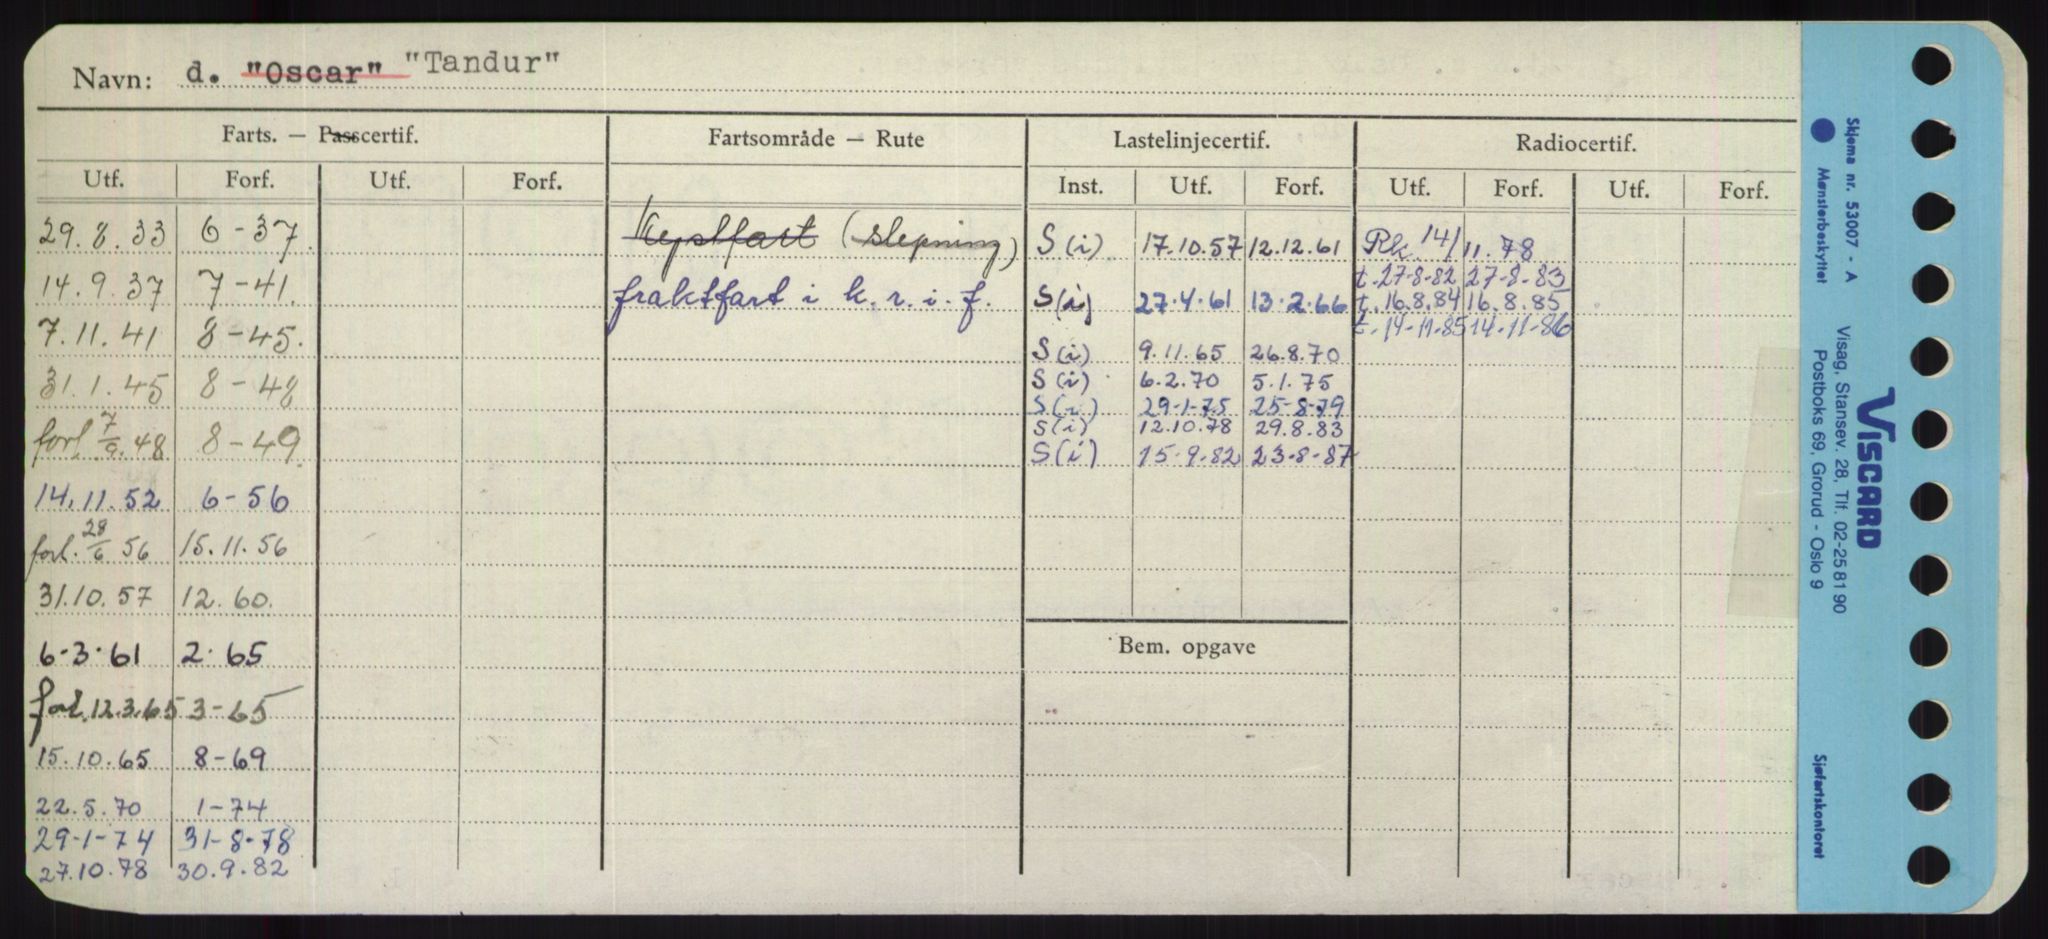 Navn: d. "Oscar" "Tandur"
Farts. — Passcertif. Fartsområde — Rute Lastelinjecertif. Radiocertif.
Utf. Forf. Utf. Forf. Inst. Utf. Forf. Utf. Forf. Utf. Forf.
29.8.33 6-37 Kystfart (slepning) S(i) 17.10.57 12.12.61 Rk. 14/11.78
t. 27-8-82 27-8-83
14.9.37 7-41. fraktfart i k. r. i. f. S(i) 27.4.61 13.2.66 t. 16.8.84 16.8.85
7.11.41 8-45. t. 14-11-85 14-11-86
S(i) 9.11.65 26.8.70
31.1.45 8-48 S(i) 6.2.70 5.1.75
S(i) 29-1-75 25-8-79
forl. 7/9.48 8-49. S(i) 12.10.78 29.8.83
S(i) 15-9.82 23-8-87
14.11.52 6-56
forl. 28/6 56 15.11.56
31.10.57 12.60.
6.3.61 2.65
Bem. opgave
forl. 12.3.65 3-65
15.10.65 8-69
22.5.70 1-74
29-1-74 31-8-78
27.10.78 30.9.82
Skjema nr. 53007 - A
Mønsterbeskyttet
Visag, Stansev. 28, Tlf. 02-25 81 90
Postboks 69, Grorud - Oslo 9
VISCARD
Sjøfartskontoret